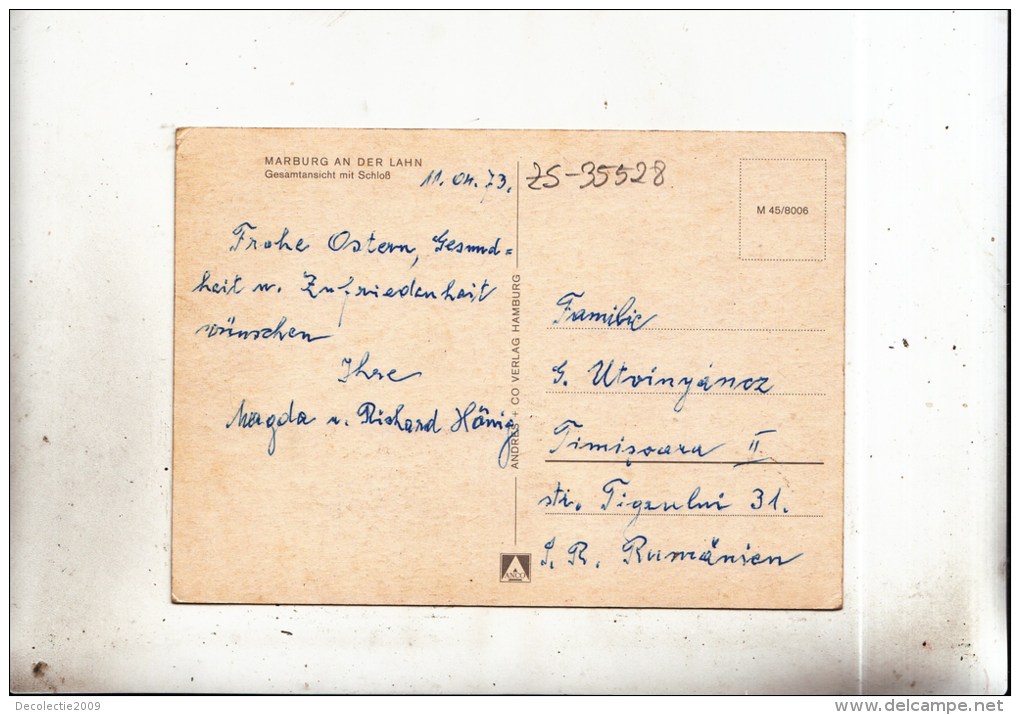 MARBURG AN DER LAHN
Gesamtansicht mit Schloß
11. 04. 73.
ZS-35528
M 45/8006
Frohe Ostern, Gesund=
heit u. Zufriedenheit
wünschen
Ihre
Magda u. Richard Hönig
ANDRES + CO VERLAG HAMBURG
ANCO
Familie
G. Utvinyáncz
Timişoara II.
str. Tigrului 31.
S. R. Rumänien
Decolectie2009
www.delcampe.net